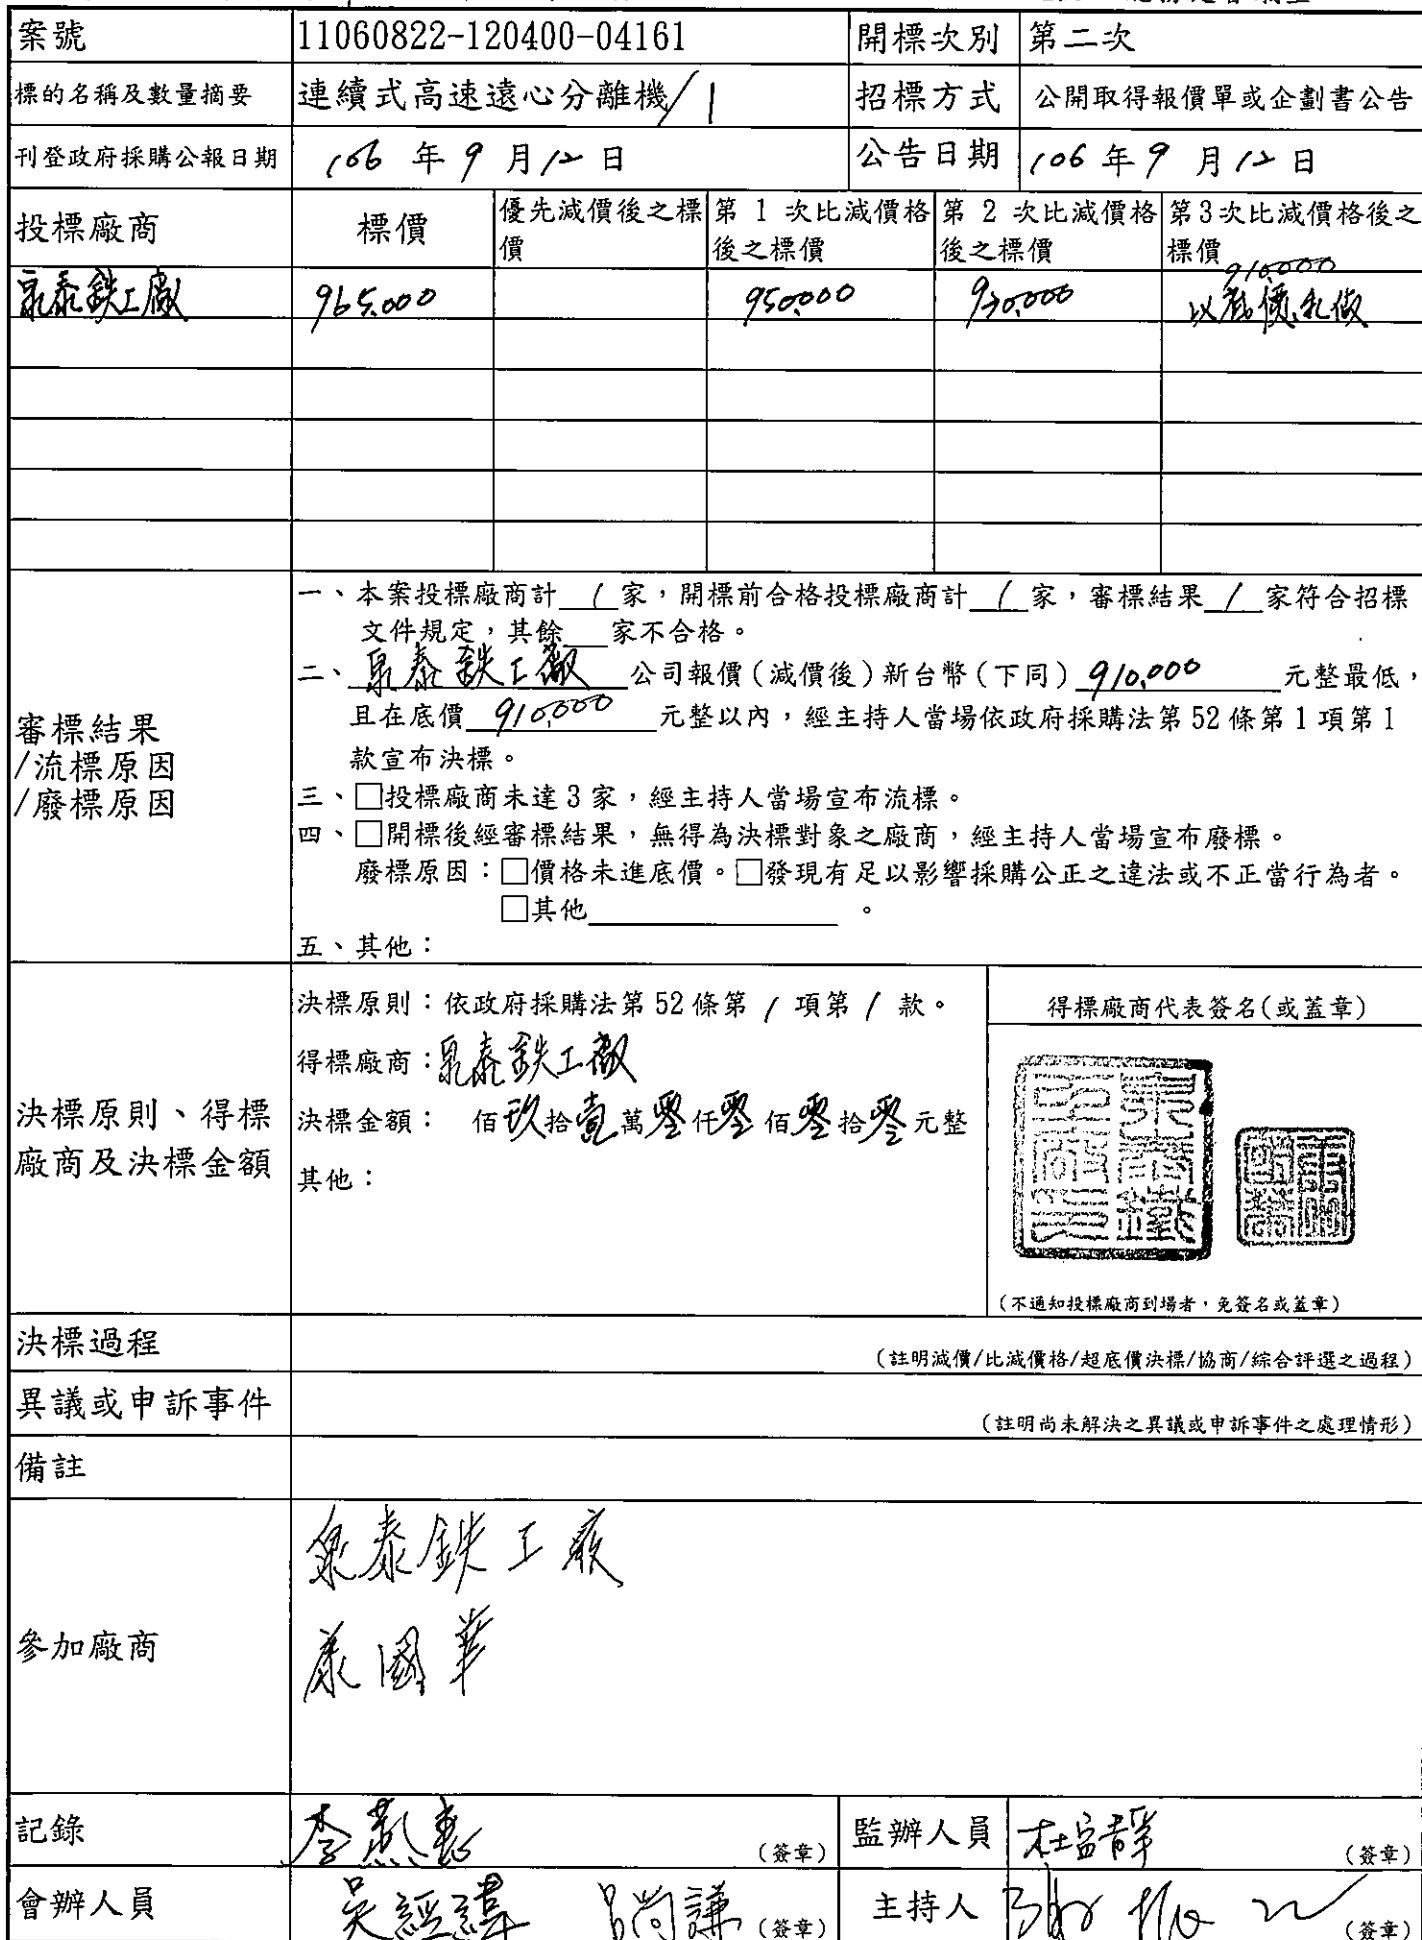 案號 11060822-120400-04161 開標次別 第二次
標的名稱及數量摘要 連續式高速遠心分離機/1 招標方式 公開取得報價單或企劃書公告
刊登政府採購公報日期 106 年 9 月 12 日 公告日期 106 年 9 月 12 日
投標廠商 標價 優先減價後之標價 第 1 次比減價格後之標價 第 2 次比減價格後之標價 第3次比減價格後之標價
910,000
泉泰鉄工廠 965,000 950,000 930,000 以底價承做
審標結果
/流標原因
/廢標原因
一、本案投標廠商計 1 家,開標前合格投標廠商計 1 家,審標結果 1 家符合招標
文件規定,其餘 家不合格。
二、泉泰鉄工廠 公司報價(減價後)新台幣(下同) 910,000 元整最低,
且在底價 910,000 元整以內,經主持人當場依政府採購法第 52 條第 1 項第 1
款宣布決標。
三、□投標廠商未達 3 家,經主持人當場宣布流標。
四、□開標後經審標結果,無得為決標對象之廠商,經主持人當場宣布廢標。
廢標原因:□價格未進底價。□發現有足以影響採購公正之違法或不正當行為者。
□其他 。
五、其他:
決標原則、得標
廠商及決標金額
決標原則:依政府採購法第 52 條第 1 項第 1 款。
得標廠商:泉泰鉄工廠
決標金額: 佰玖拾壹萬零仟零佰零拾零元整
其他:
得標廠商代表簽名(或蓋章)
(不通知投標廠商到場者,免簽名或蓋章)
決標過程 (註明減價/比減價格/超底價決標/協商/綜合評選之過程)
異議或申訴事件 (註明尚未解決之異議或申訴事件之處理情形)
備註
參加廠商
泉泰鉄工廠
康國華
記錄 李燕惠 (簽章) 監辦人員 杜富靜 (簽章)
會辦人員 吳經緯 呂尚謙 (簽章) 主持人 (簽章)